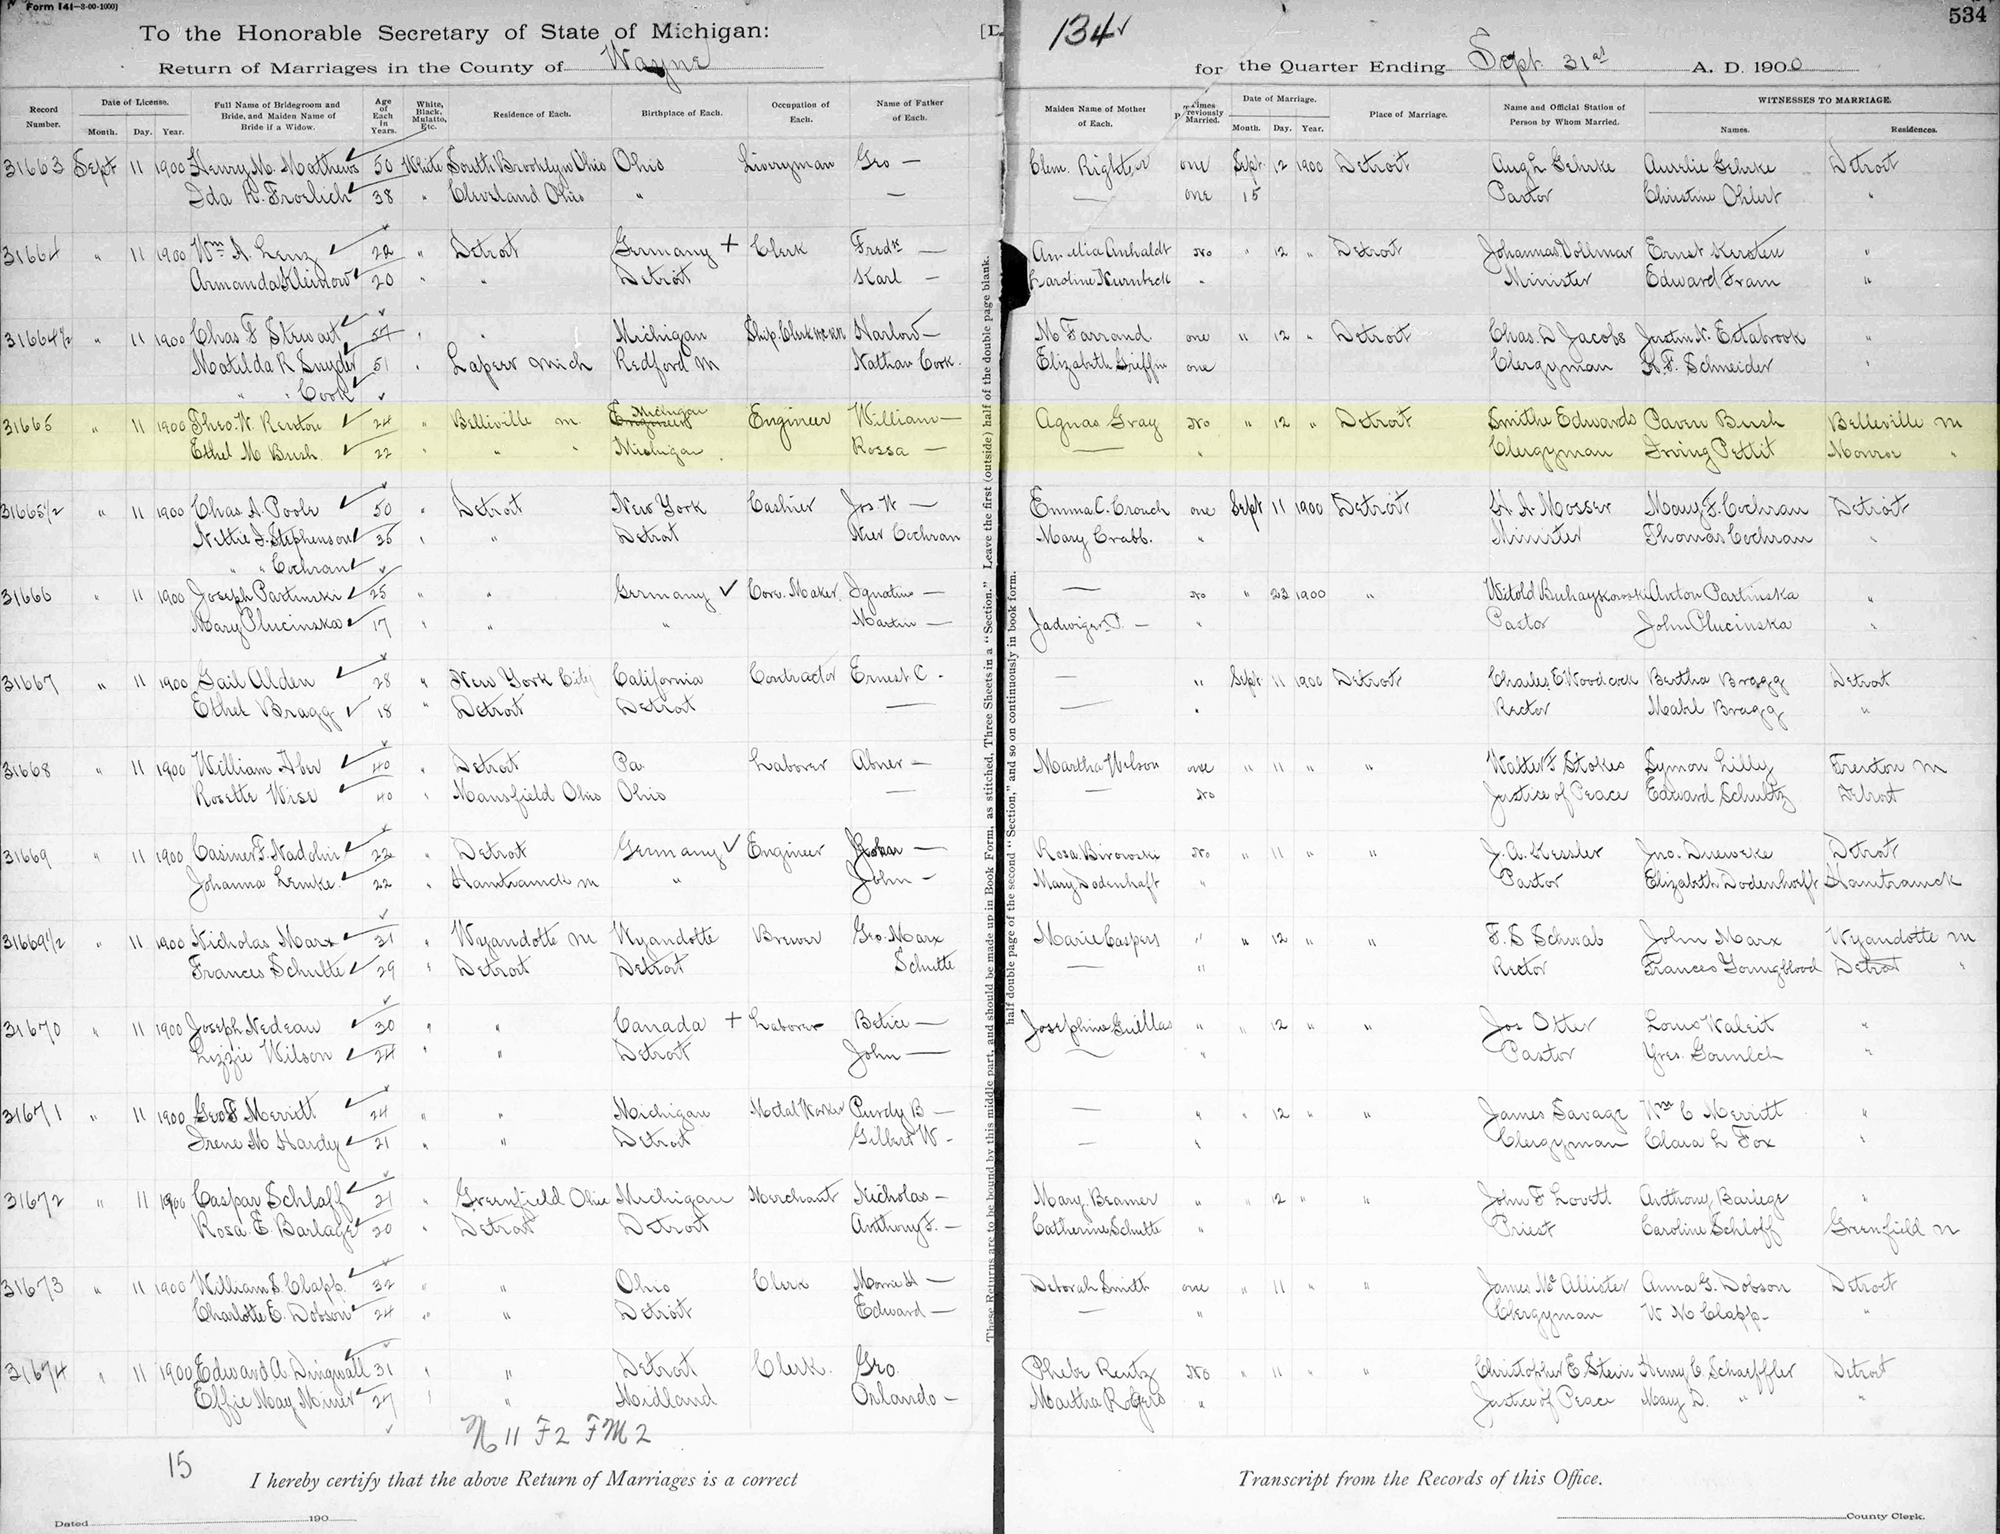 Form 141-3-00-1000)
534
To the Honorable Secretary of State of Michigan:
134
Return of Marriages in the County of Wayne
for the Quarter Ending Sept. 31st A. D. 1900
Record Number. | Date of License. Month. Day. Year. | Full Name of Bridegroom and Bride, and Maiden Name of Bride if a Widow. | Age of Each in Years. | White, Black, Mulatto, Etc. | Residence of Each. | Birthplace of Each. | Occupation of Each. | Name of Father of Each. | Maiden Name of Mother of Each. | Times Previously Married. | Date of Marriage. Month. Day. Year. | Place of Marriage. | Name and Official Station of Person by Whom Married. | WITNESSES TO MARRIAGE. Names. Residences.
31663 Sept 11 1900 Henry M. Matthews 50 White South Brooklyn Ohio Ohio Liveryman Geo — Clem. Righter one Sept 12 1900 Detroit Aug L Gehrke Aurelie Gehrke Detroit
Ida R. Froelich 38 " Cleveland Ohio " — — one 15 Pastor Christine Ohlert "
31664 " 11 1900 Wm A. Lenz 22 " Detroit Germany + Clerk Fredk — Amelia Anhaldt No " 12 " Detroit Johannas Vollmar Ernst Kersten "
Armanda Kleidow 20 " " Detroit Karl — Karoline Nurnbeck " Minister Edward Fram "
31664 1/2 " 11 1900 Chas F Stewart 57 " " Michigan Ship. Clerk Harlow — M Farrand one " 12 " Detroit Chas. D Jacobs Justin N. Estabrook "
Matilda R Snyder 51 " Lapeer Mich Redford M Nathan Cook. Elizabeth Griffin one Clergyman R. F. Schneider "
" " Cook
31665 " 11 1900 Theo. W. Renton 24 " Belleville M. Engineer Michigan Engineer William — Agnas Gray No " 12 " Detroit Smithe Edwards Paven Bush Belleville M
Ethel M Bush 22 " " " Michigan Rossa — — " Clergyman Irving Pettit Monroe "
31665 1/2 " 11 1900 Chas. A. Poole 50 " Detroit New York Cashier Jos W — Emma C. Crouch one Sept 11 1900 Detroit W. A. Moeser Mary F. Cochran Detroit
Nettie J. Stephenson 35 " " Detroit Nier Cochran Mary Crabb. " Minister Thomas Cochran "
" " Cochran
31666 " 11 1900 Joseph Partinski 25 " " Germany Core. Maker Ignatius — — No " 23 1900 " Witold Buhaykowski Anton Partinska "
Mary Plucinska 17 " " " Martin — Jadwiga P. — " Pastor John Plucinska "
31667 " 11 1900 Gail Alden 28 " New York City California Contractor Ernest C. — " Sept 11 1900 Detroit Charles E Woodcock Bertha Bragg Detroit
Ethel Bragg 18 " Detroit Detroit — — " Rector Mabel Bragg "
31668 " 11 1900 William Aber 40 " Detroit Pa. Laborer Abner — Martha Wilson one " 11 " " Walter F Stokes Symon Lilly Trenton M
Rosette Wise 40 " Mansfield Ohio Ohio — — No Justice of Peace Edward Schultz Detroit
31669 " 11 1900 Casimer F. Nadolni 22 " Detroit Germany Engineer John — Rosa Birowski No " 11 " " J. A. Hessler Jno. Dueweke Detroit
Johanna Lemke 22 " Hamtramck M " John — Mary Dodenhoft " Pastor Elizabeth Dodenhoft Hamtramck
31669 1/2 " 11 1900 Nicholas Marx 31 " Wyandotte M Wyandotte Brewer Geo. Marx Marie Caspers " " 12 " " F. S Schwab John Marx Wyandotte M
Frances Schulte 29 " Detroit Detroit Schulte — " Rector Frances Youngblood Detroit "
31670 " 11 1900 Joseph Nedeau 30 " " Canada + Laborer Betice — Josephine Guillas " " 12 " " Joe Otter Louis Waleit "
Lizzie Wilson 24 " " Detroit John — — " Pastor Yres. Gounlch "
31671 " 11 1900 Geo F Merritt 24 " " Michigan Metal Worker Purdy B — — " " 12 " " James Savage Wm C Merritt "
Irene M Hardy 21 " " Detroit Gilbert W — — " Clergyman Clara L Fox "
31672 " 11 1900 Caspar Schloff 21 " Greenfield Ohio Michigan Merchant Nicholas — Mary. Beamer " " 12 " " John F Lovett Anthony Barlege "
Rosa. E. Barlage 20 " Detroit Detroit Anthony F. — Catherine Schulte " Priest Caroline Schloff Greenfield M
31673 " 11 1900 William S. Clapp. 32 " " Ohio Clerk Morris H — Deborah Smith one " 11 " " James McAllister Anna G. Dobson Detroit
Charlotte E. Dobson 24 " " Detroit Edward — — " Clergyman W M Clapp "
31674 " 11 1900 Edward A. Dingwall 31 " " Detroit Clerk. Geo. Phebe Rentz No " 11 " " Christopher E Stein Henry C. Schaeffer Detroit
Effie May Miner 27 " " Midland Orlando — Martha Rogers " Justice of Peace Mary D. " "
N 11 F2 FM 2
15
I hereby certify that the above Return of Marriages is a correct Transcript from the Records of this Office.
Dated 190
County Clerk.
These Returns are to be bound by this middle part, and should be made up in Book Form, as stitched, Three Sheets in a "Section." Leave the first (outside) half of the double page blank.
half double page of the second "Section," and so on continuously in book form.